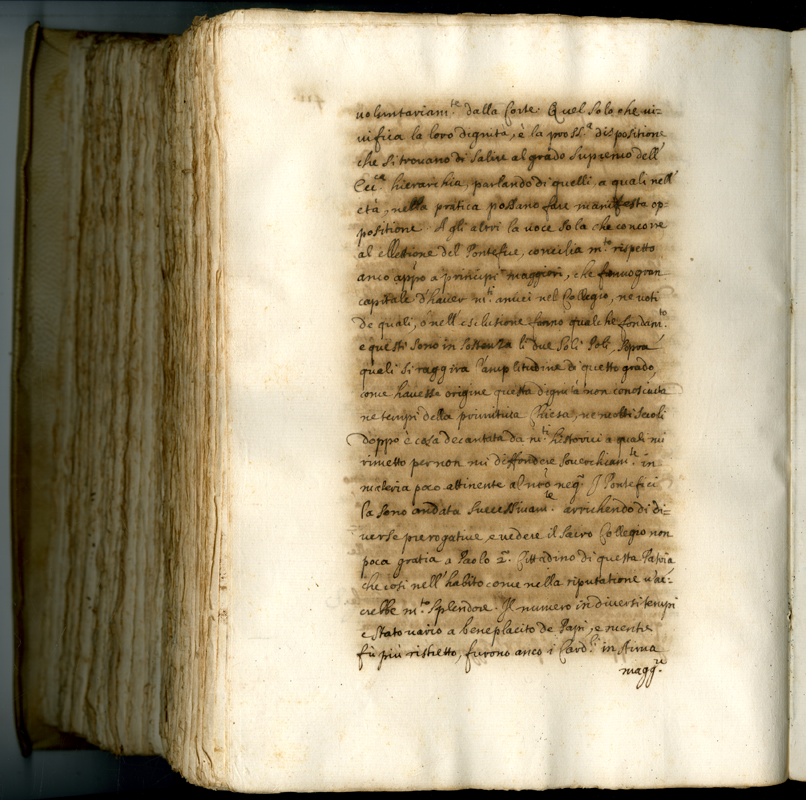 voluntariam.te dalla Corte. Quel solo che vi=
vifica la loro dignità, è la pross.a dispositione
che si trovano di salire al grado supremo dell'
Ecc.ca hierarchia, parlando di quelli, a quali nell'
età, nella pratica possano fare manifesta op-
positione. A gli altri la voce sola che concorre
al elletione del Pontefice, concilia m.to rispetto
anco appo a principi maggiori, che fanno gran
capitale d'haver m.ti amici nel Collegio, ne voti
de quali, o nell'esclutione fanno qualche fondam.to
e questi sono in sostenza li due soli Poli, sopra
quali si raggira l'amplitudine di questo grado,
come havesse origine questa dignità non conosciuta
ne tempi della primitiva Chiesa, ne molti secoli
doppo è cosa decantata da m.ti historici a quali mi
rimetto per non mi diffondere soverchiam.te in
materia poco attinente al nro neg.o I Pontefici
la sono andata successivam.te arrichendo di di-
verse prerogative, e vedere il Sacro Collegio non
poca gratia a Paolo 2.o Cittadino di questa Patria
che così nell'habito come nella riputatione v'ac-
crebbe m.to splendore. Il numero in diversi tempi
è stato vario a beneplacito de Papi, e mentre
fù più ristretto, furono anco i Card.li in stima
magg.re